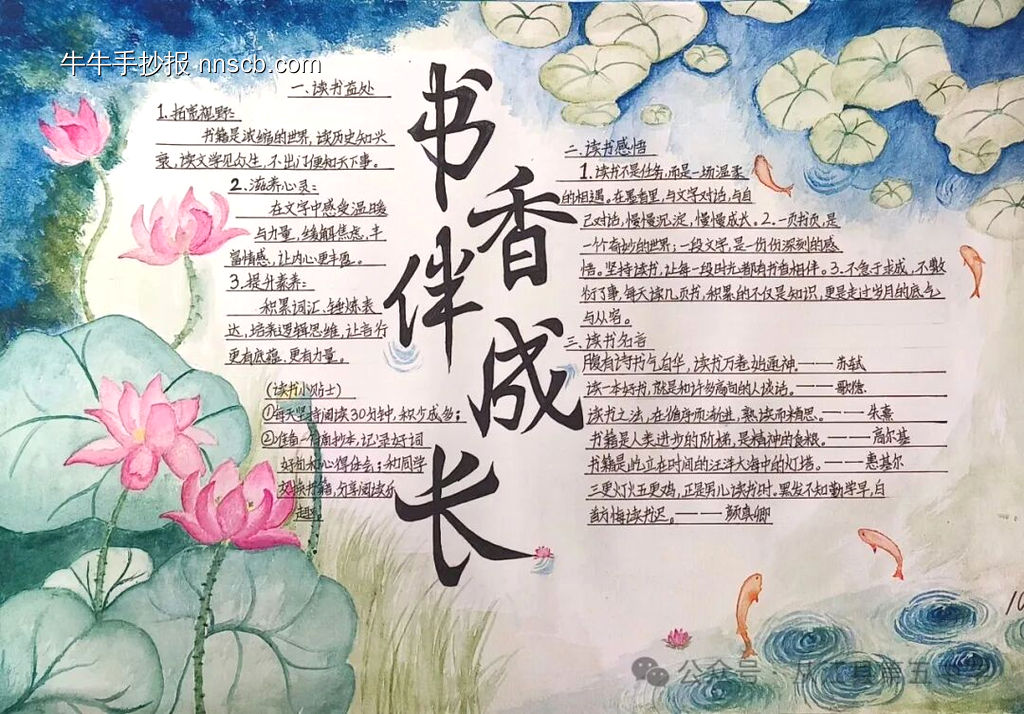 牛牛手抄报·nnscb.com
书香伴成长
一.读书益处
1.拓宽视野:
书籍是浓缩的世界,读历史知兴
衰、读文学见众生,不出门便知天下事。
2.滋养心灵:
在文字中感受温暖
与力量,缓解焦虑,丰
富情感,让内心更丰盈。
3.提升素养:
积累词汇、锤炼表
达,培养逻辑思维,让言行
更有底蕴、更有力量。
(读书小贴士)
①每天坚持阅读30分钟,积少成多;
②准备一个摘抄本,记录好词
好句和心得体会;和同学
交换书籍,分享阅读乐
趣。
二.读书感悟
1.读书不是任务,而是一场温柔
的相遇。在墨香里,与文字对话,与自
己对话,慢慢沉淀,慢慢成长。2.一页书页,是
一个奇妙的世界;一段文字,是一份份深刻的感
悟。坚持读书,让每一段时光都有书香相伴。3.不急于求成,不敷
衍了事,每天读几页书,积累的不仅是知识,更是走过岁月的底气
与从容。
三.读书名言
腹有诗书气自华,读书万卷始通神———苏轼
读一本好书,就是和许多高尚的人谈话。———歌德
读书之法,在循序而渐进,熟读而精思。———朱熹
书籍是人类进步的阶梯,是精神的食粮。———高尔基
书籍是屹立在时间的汪洋大海中的灯塔。———惠基尔
三更灯火五更鸡,正是男儿读书时,黑发不知勤学早,白
首方悔读书迟。———颜真卿
公众号·从江县第五中学